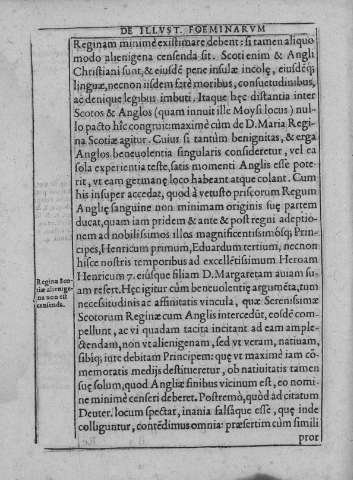 DE ILLVST. FOEMINARVM
Reginam minimè existimare debent: si tamen aliquo
modo alienigena censenda sit. Scoti enim & Angli
Christiani sunt, & eiusdē penè insulæ incolę, eiusdēq;
linguæ, necnon iisdem ferè moribus, consuetudinibus,
ac denique legibus imbuti. Itaque hęc distantia inter
Scotos & Anglos (quam innuit ille Moysi locus) nul-
lo pacto hîc congruit: maximè cùm de D. Maria Regi-
na Scotiæ agitur. Cuius si tantùm benignitas, & erga
Anglos beneuolentia singularis consideretur, vel ea
sola experientia teste, satis momenti Anglis esse pote-
rit, vt eam germanę loco habeant atque colant. Cum
his insuper accedat, quod à vetusto priscorum Regum
Anglię sanguine non minimam originis suę partem
ducat, quam iam pridem & ante & post regni adeptio-
nem ad nobilissimos illos magnificentissimósq; Prin-
cipes, Henricum primum, Eduardum tertium, necnon
hisce nostris temporibus ad excellētissimum Heroam
Henricum 7. eiusque filiam D. Margaretam auiam su-
am refert. Hęc igitur cùm beneuolentię argumēta, tum
necessitudinis ac affinitatis vincula, quæ Serenissimæ
Scotorum Reginæ cum Anglis intercedūt, eosdē com-
pellunt, ac vi quadam tacita incitant ad eamample-
ctendam, non vt alienigenam, sed vt veram, natiuam,
sibiq; iure debitam Principem: quę vt maximè iam cō-
memoratis medijs destitueretur, ob natiuitatis tamen
suę solum, quod Angliæ finibus vicinum est, eo nomi-
ne minimè censeri deberet. Postremò, quòd ad citatum
Deuter. locum spectat, inania falsáque esse, quę inde
colliguntur, contēdimus omnia: præsertim cùm simili
pror
Regina Sco-
tiæ alienige-
na non est
censenda.